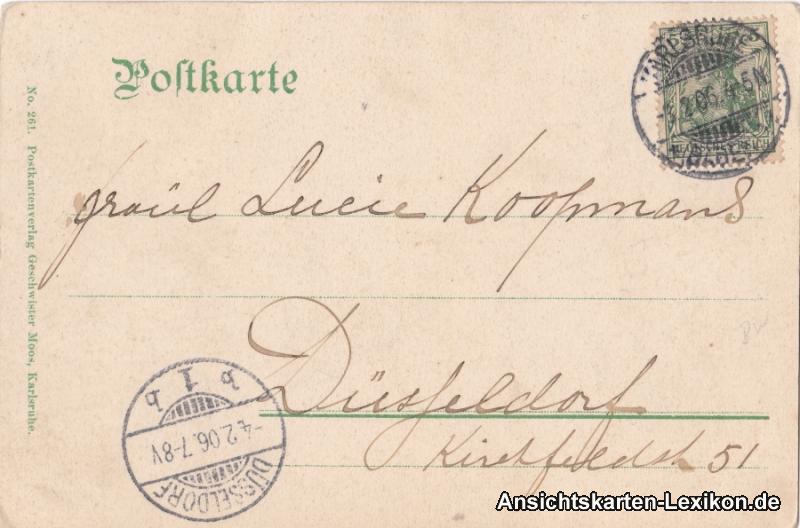 Postkarte
KARLSRUHE
3.2.06.4-5N
DEUTSCHES REICH
Fräul Lucie Koopmans
Düsseldorf
Kirchfeldstr 51
b 1 b
-4.2.06.7-8V
DÜSSELDORF
No. 261. Postkartenverlag Geschwister Moos, Karlsruhe.
Ansichtskarten-Lexikon.de